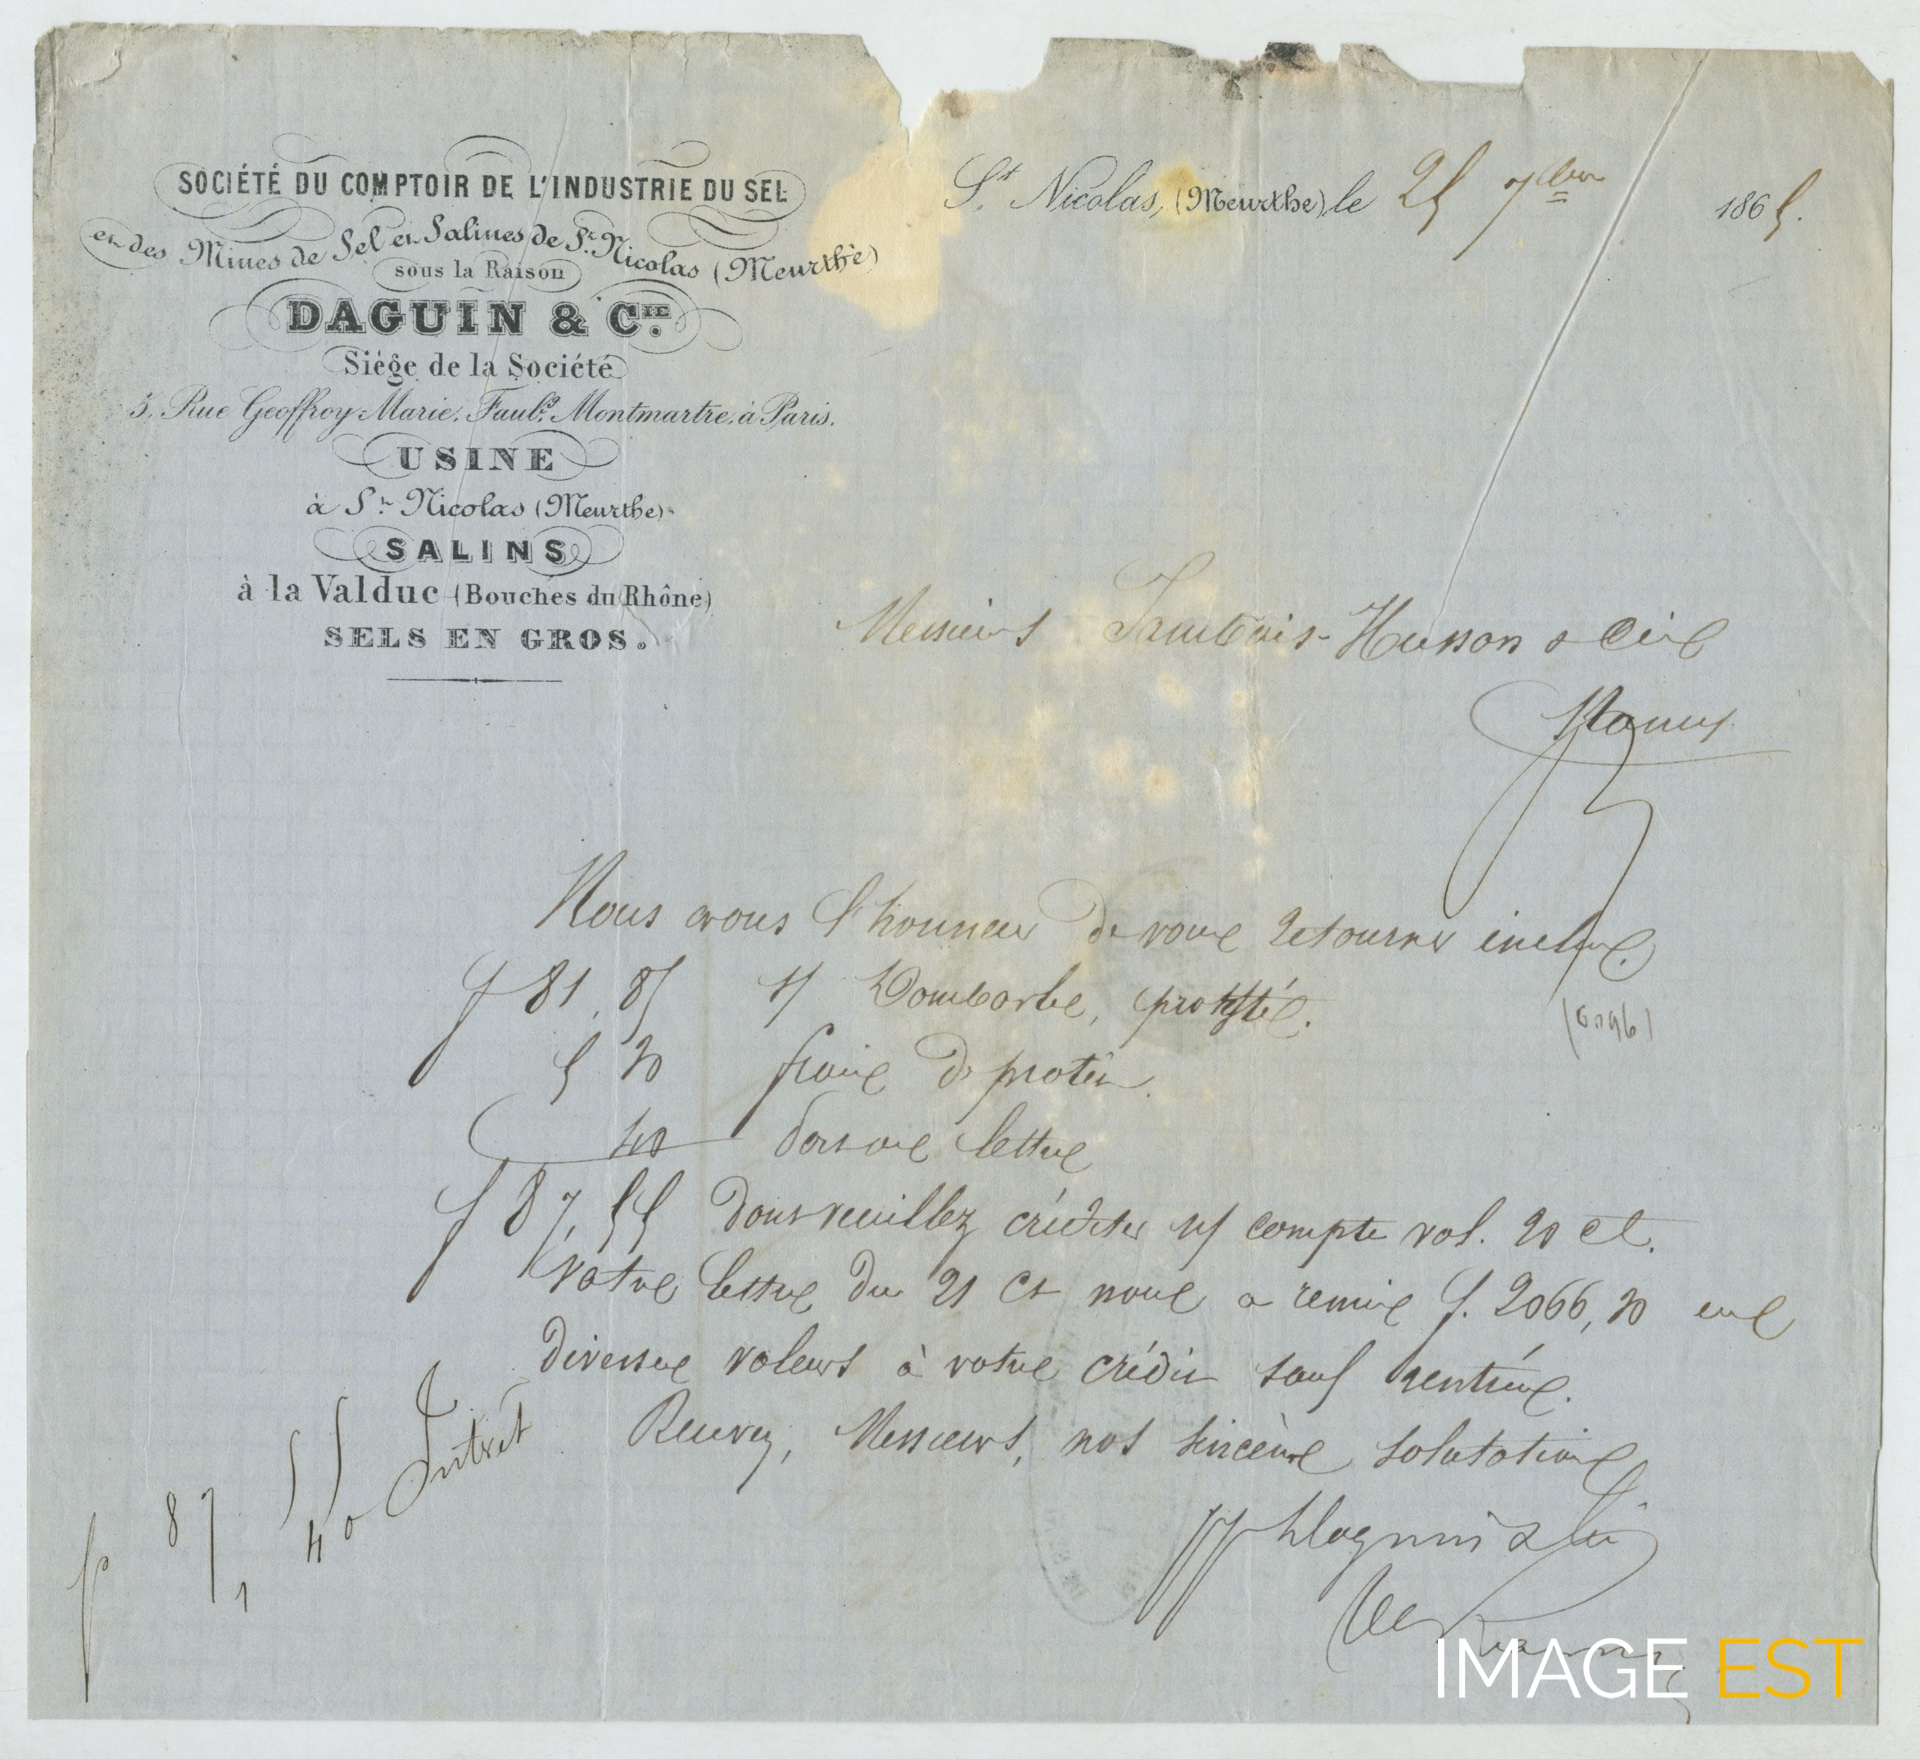 SOCIÉTÉ DU COMPTOIR DE L'INDUSTRIE DU SEL
et des Mines de Sel et Salines de St. Nicolas (Meurthe)
sous la Raison
DAGUIN & CIE.
Siége de la Société
5, Rue Geoffroy-Marie, Faubg. Montmartre, à Paris.
USINE
à St. Nicolas (Meurthe)
SALINS
à la Valduc (Bouches du Rhône)
SELS EN GROS.
St. Nicolas, (Meurthe), le 25 7bre 1865.
Messieurs Husson & Cie
Nancy
Nous avons l'honneur de vous retourner inclus.
f 81,85 s/ Dombasle, protesté.
5 30 frais de protêt.
40 lettre
f 87,55 dont veuillez créditer n/ compte val. 20 ct.
Votre lettre du 21 ct nous a remis f. 2066,30 en
diverses valeurs à votre crédit sauf rentrée.
Recevez, Messieurs, nos sincères salutations
pp Daguin & Cie
f 87,55
40 Intret
IMAGE EST